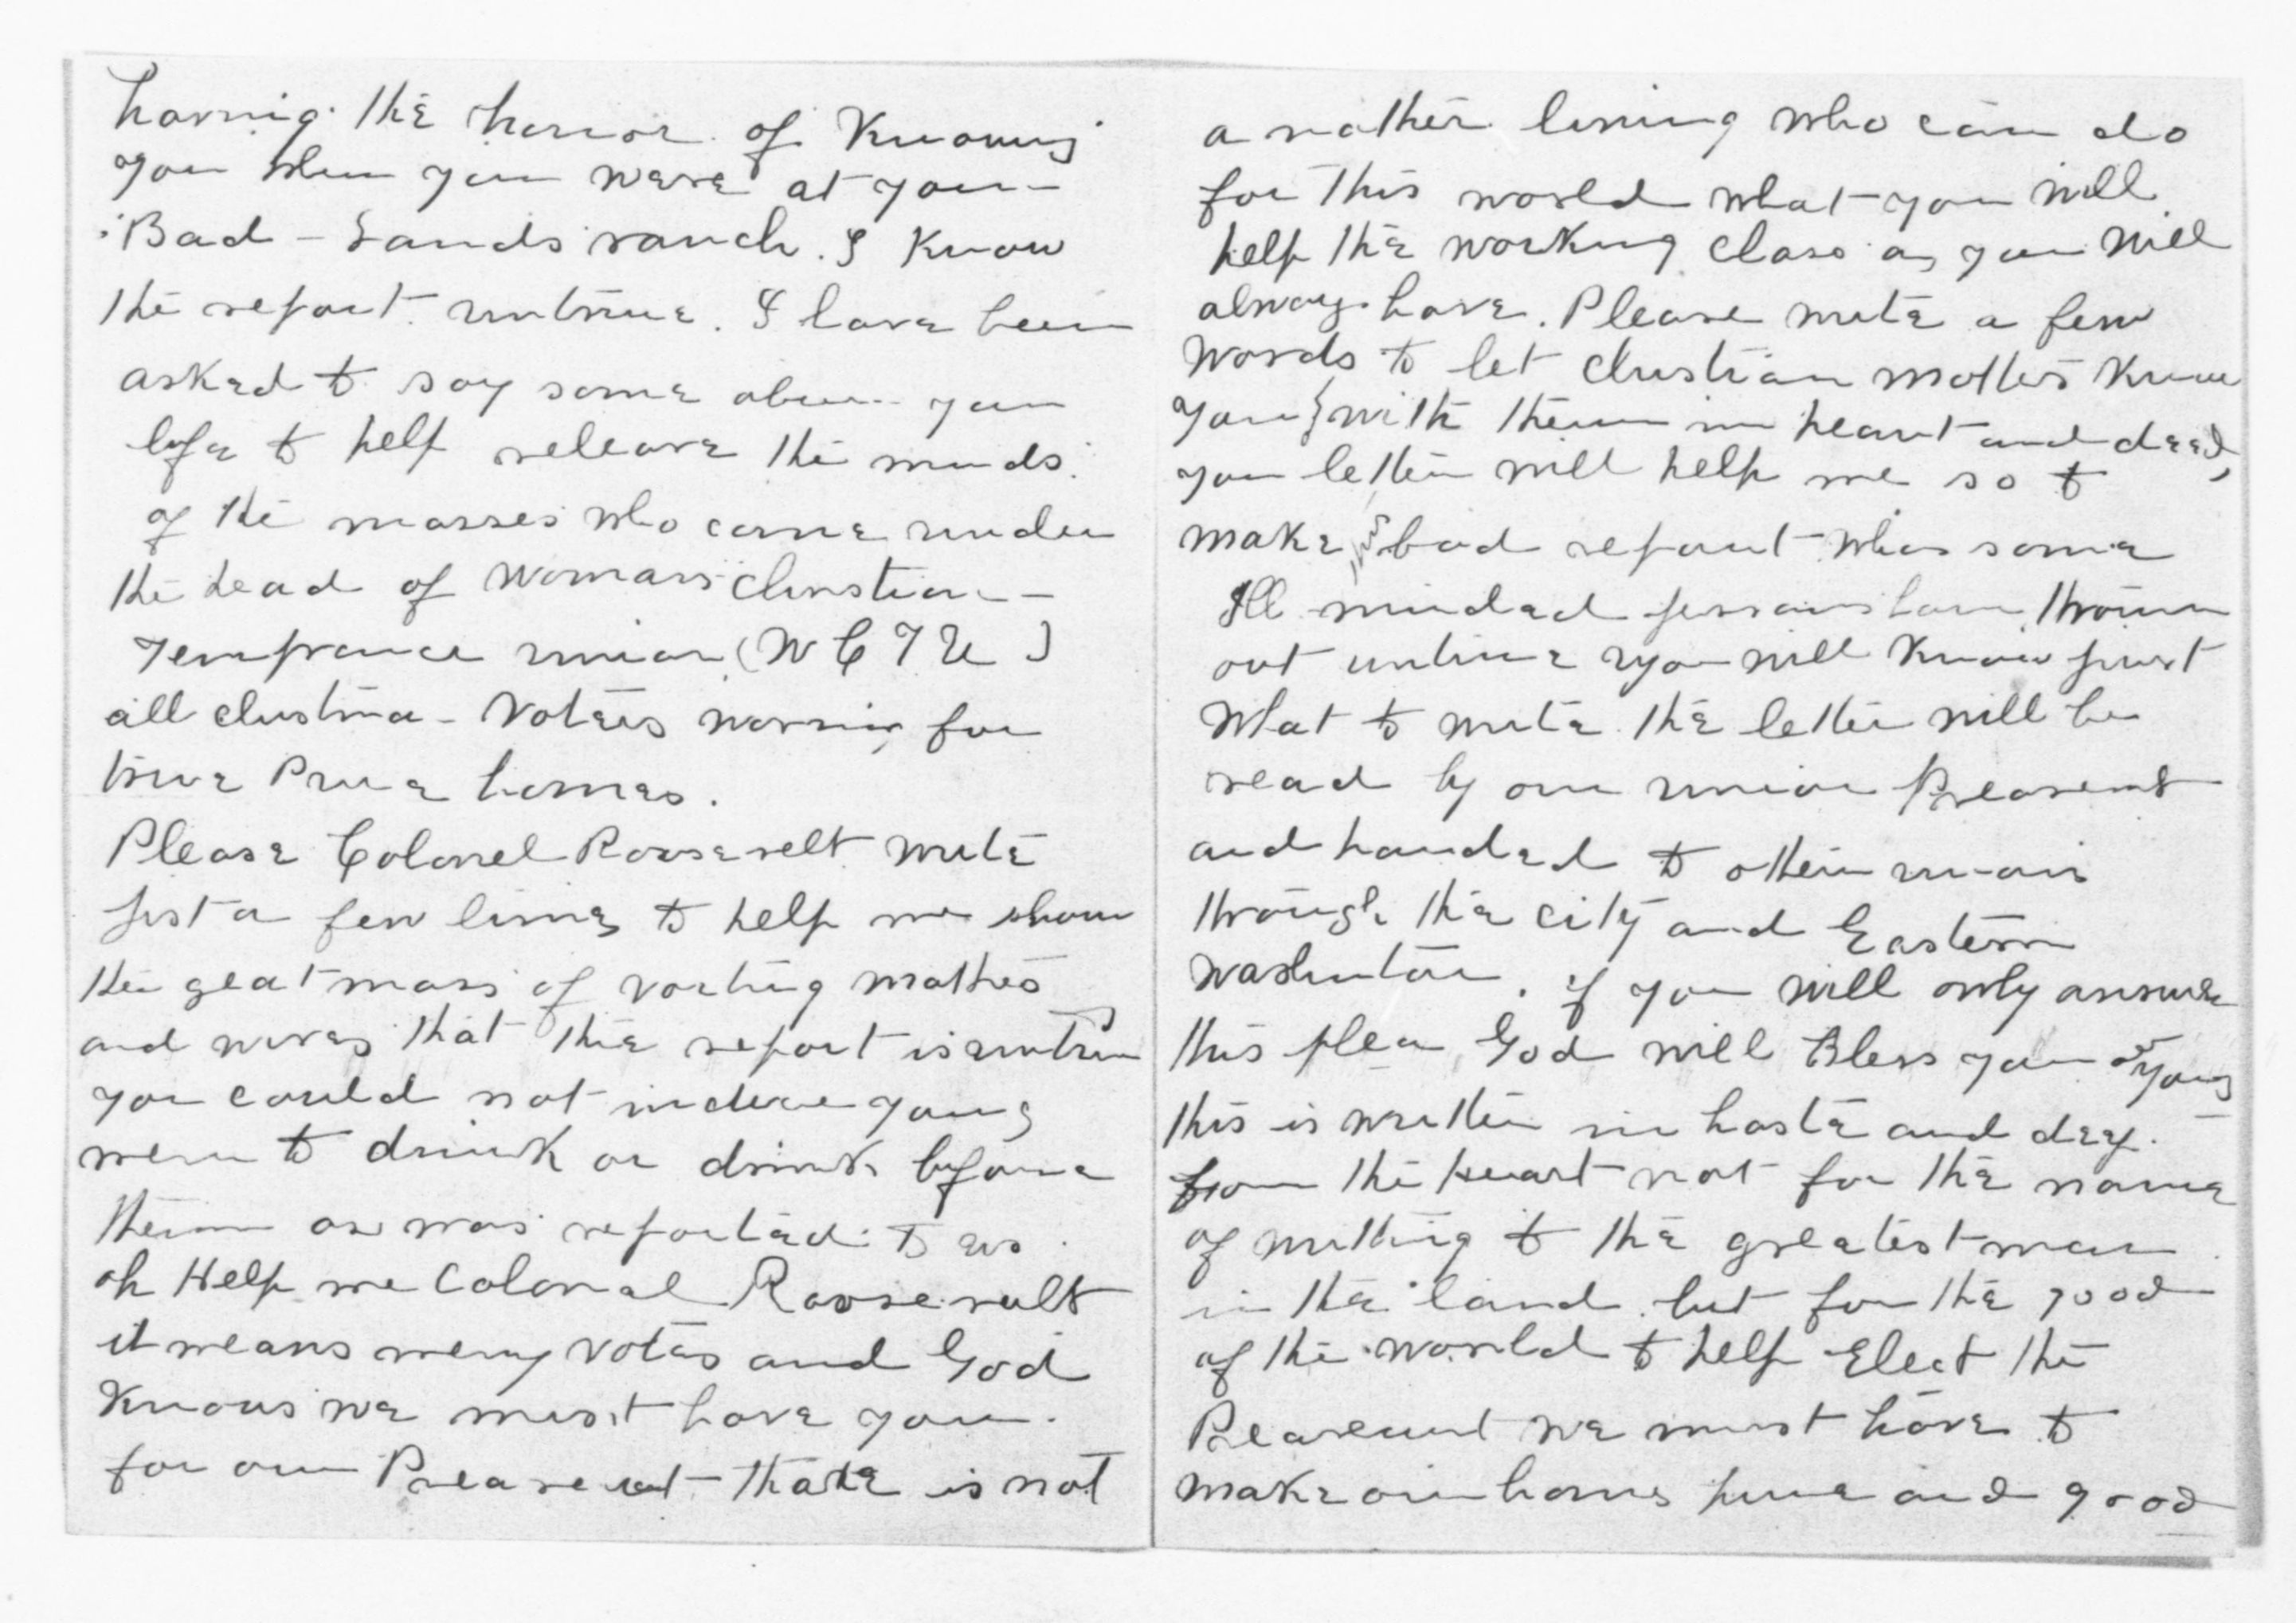 having the honor of Knowing
you when you were at your
Bad-Lands ranch. I Know
the report untrue. I have been
asked to say some about your
life to help releave the minds
of the masses who come under
the head of Womans Christian
Temprance union (W C T U)
all Christian Voters working for
true Pure homes.
Please Colonel Roosevelt write
just a few lines to help me show
the great mass of voting mothers
and wives that the report is untrue
you could not induce young
men to drink or drink before
them as was reported to us.
oh Help me Colonel Roosevelt
it means meny votes and God
Knows we must have you.
for our Preasent there is not
a nother living who can do
for this world what you will
help the working class as you will
always have. Please write a few
words to let Christian mothers Know
your with them in heart and deed,
your letter will help me so to
make this bad report whis some
Ill minded persons have thrown
out untrue you will Know just
What to write the letter will be
read by our union Preasent
and handed to other unions
through the city and Eastern
Washington. if you will only answer
this plea God will Bless you & yours
this is written in haste and deep
from the Heart not for the name
of writting to the greatest man
in the land but for the good
of the world to help Elect the
Preaseant we must have to
make our homes pure and good